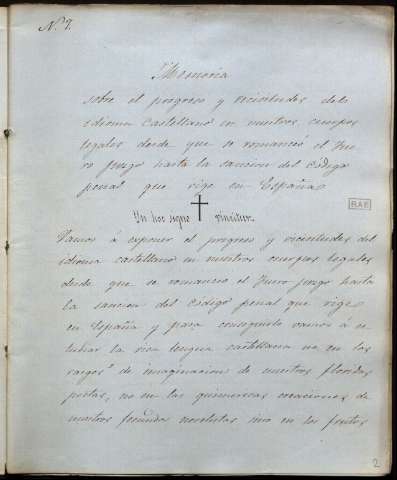 N.º 7.
Memoria
sobre el progreso y vicisitudes del
idioma Castellano en nuestros cuerpos
legales desde que se romanceó el Fue
ro Juzgo hasta la sancion del Código
penal que rige en España
In hoc signo vincitur.
BAE
Vamos á exponer el progreso y vicisitudes del
idioma castellano en nuestros cuerpos legales
desde que se romanceó el Fuero juzgo hasta
la sancion del código penal que rige
en España y para conseguirlo vamos á es
tudiar la rica lengua castellana no en los
rasgos de imaginacion de nuestros floridos
poetas, no en las quimericas creaciones de
nuestros fecundos novelistas sino en los frutos
2